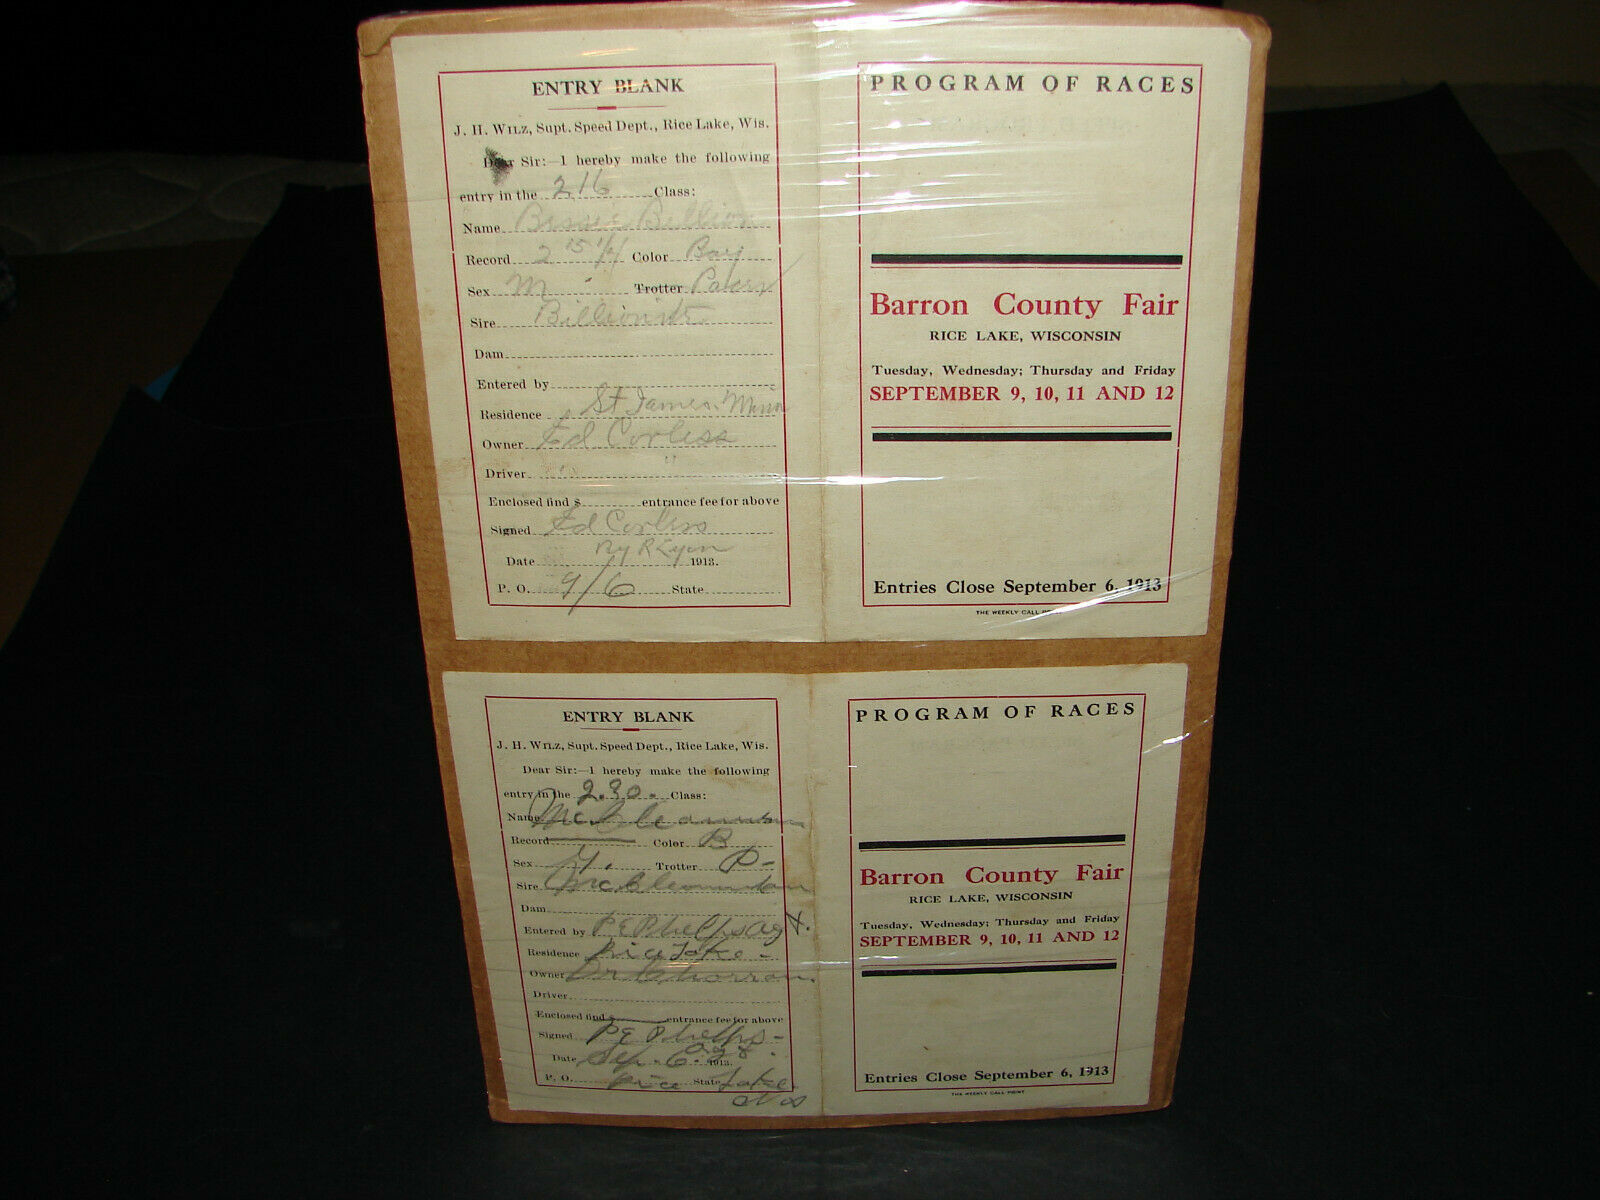 ENTRY BLANK
J. H. WILZ, Supt. Speed Dept., Rice Lake, Wis.
Dear Sir:—I hereby make the following
entry in the 2.16 Class:
Name Billion
Record 2 15 1/4 Color Bay
Sex M Trotter Pacer
Sire Billionite
Dam
Entered by
Residence St James. Minn
Owner Ed Corliss
Driver " "
Enclosed find $ entrance fee for above
Signed Ed Corliss
By R Lyon
Date 1913.
P. O. 9/6 State
PROGRAM OF RACES
Barron County Fair
RICE LAKE, WISCONSIN
Tuesday, Wednesday; Thursday and Friday
SEPTEMBER 9, 10, 11 AND 12
Entries Close September 6, 1913
THE WEEKLY CALL PRINT
ENTRY BLANK
J. H. WILZ, Supt. Speed Dept., Rice Lake, Wis.
Dear Sir:—I hereby make the following
entry in the 2.30. Class:
Name
Record Color B
Sex Trotter P-
Sire
Dam
Entered by P E Phelps Agt.
Residence Rice Lake -
Owner Dr
Driver
Enclosed find $ entrance fee for above
Signed P E Phelps -
Agt.
Date Sep. 6. 1913.
P. O. Rice State Lake.
Wis
PROGRAM OF RACES
Barron County Fair
RICE LAKE, WISCONSIN
Tuesday, Wednesday; Thursday and Friday
SEPTEMBER 9, 10, 11 AND 12
Entries Close September 6, 1913
THE WEEKLY CALL PRINT